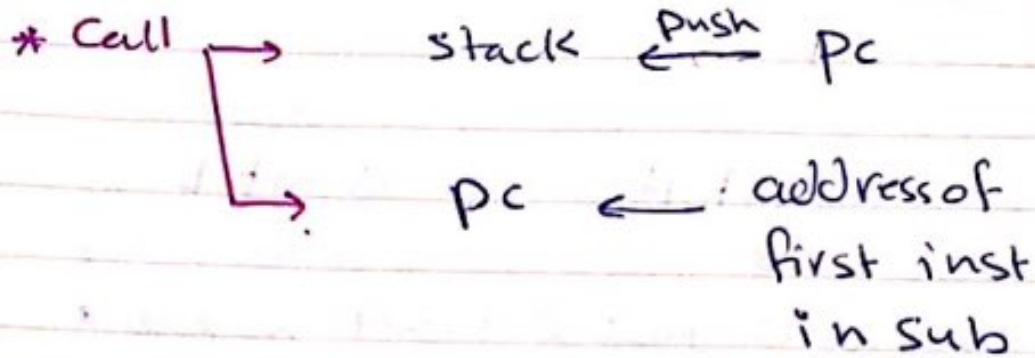 * Call → stack ← push pc
→ pc ← address of
first inst
in sub